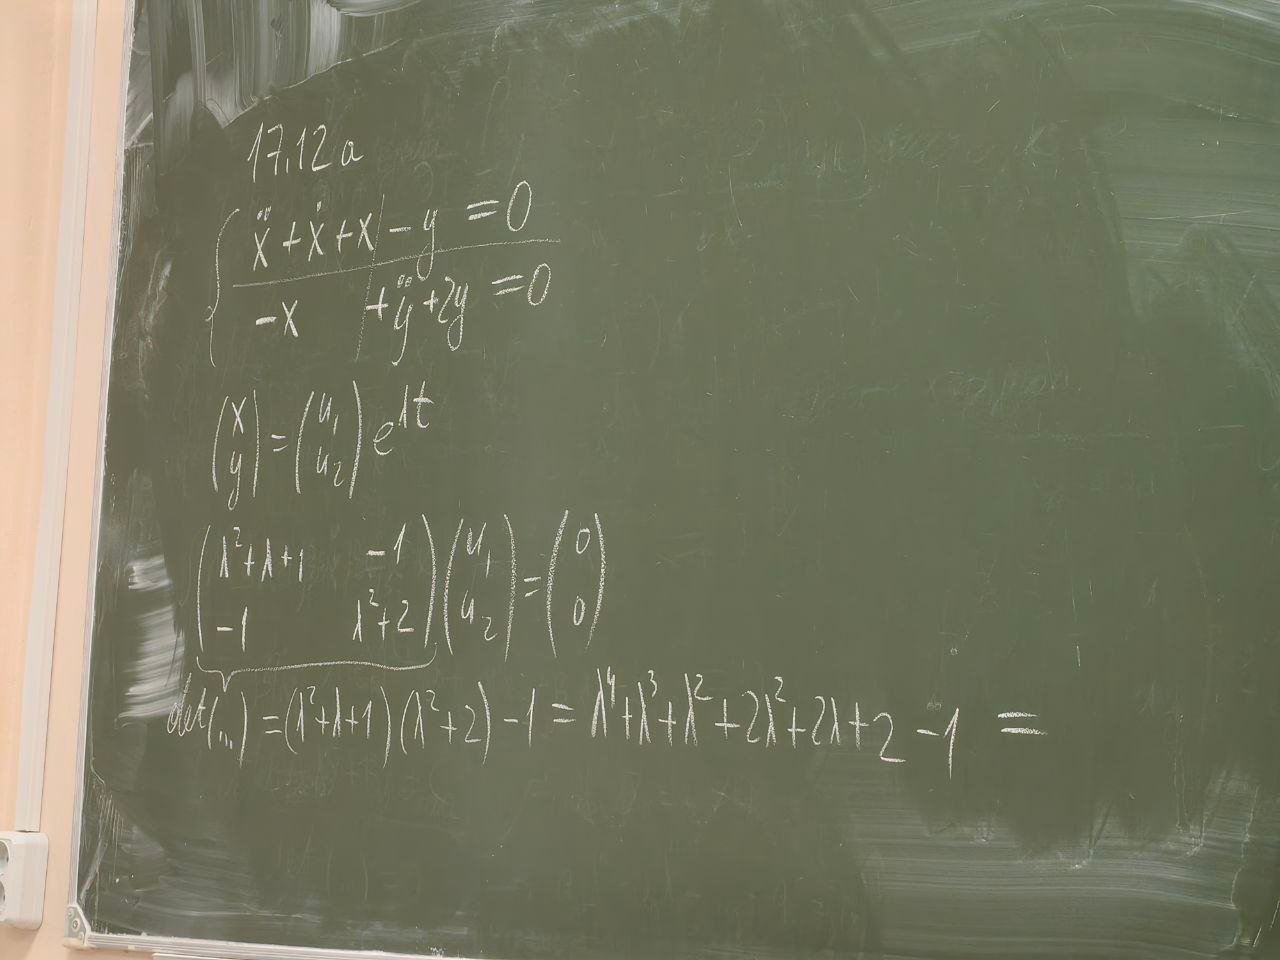 17.12a
ẍ + ẋ + x - y = 0
-x + ÿ + 2y = 0
(x y) = (u₁ u₂) e^λt
(λ²+λ+1 -1 -1 λ²+2) (u₁ u₂) = (0 0)
det(...) = (λ²+λ+1)(λ²+2) - 1 = λ⁴+λ³+λ²+2λ²+2λ+2 - 1 =